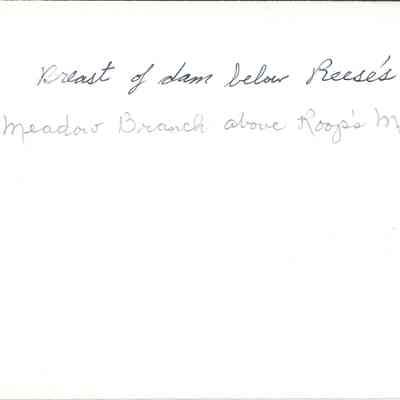 Breast of dam below Reese's
Meadow Branch above Roop's M